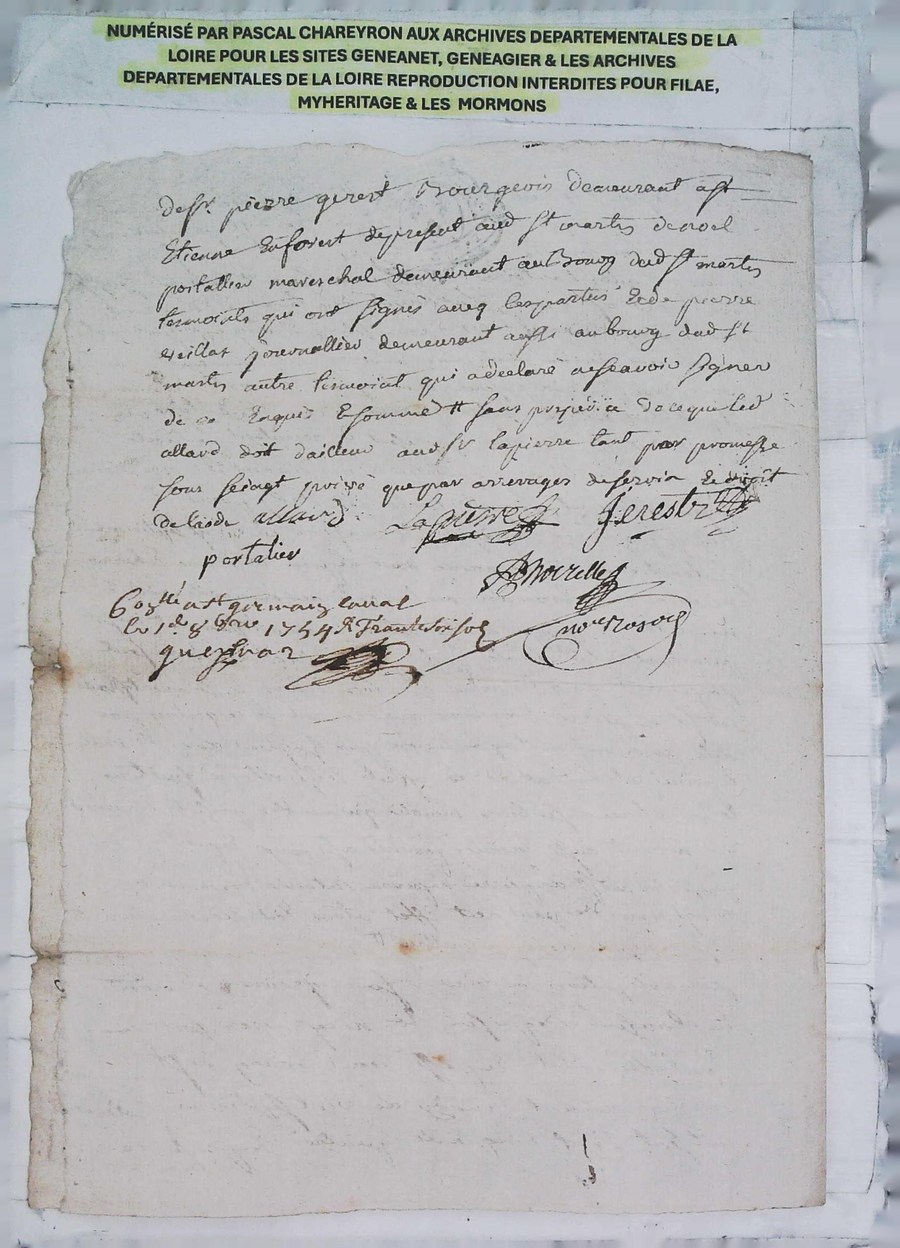 NUMÉRISÉ PAR PASCAL CHAREYRON AUX ARCHIVES DEPARTEMENTALES DE LA
LOIRE POUR LES SITES GENEANET, GENEAGIER & LES ARCHIVES
DEPARTEMENTALES DE LA LOIRE REPRODUCTION INTERDITES POUR FILAE,
MYHERITAGE & LES MORMONS
de Sr. pierre gerest Bourgeois demeurant a St
Etienne En forest de present aud St martin
portallier mareschal demeurant au Bourg dud St martin
tesmoints qui ont signés avec les parties Et de pierre
journallier demeurant aussi au bourg dud St
martin autre tesmoint qui a declaré scavoir signer
de ce Enquis Et sommé sans prejudice de ce que led
allard doit d'ailleur aud Sr lapierre tant par promesse
sous seingt privé que par arrerages de servis Et droit
de lods allard Lapierre Gerest
portalier
a st germain laval
le 1er 8bre 1754
nore Royal